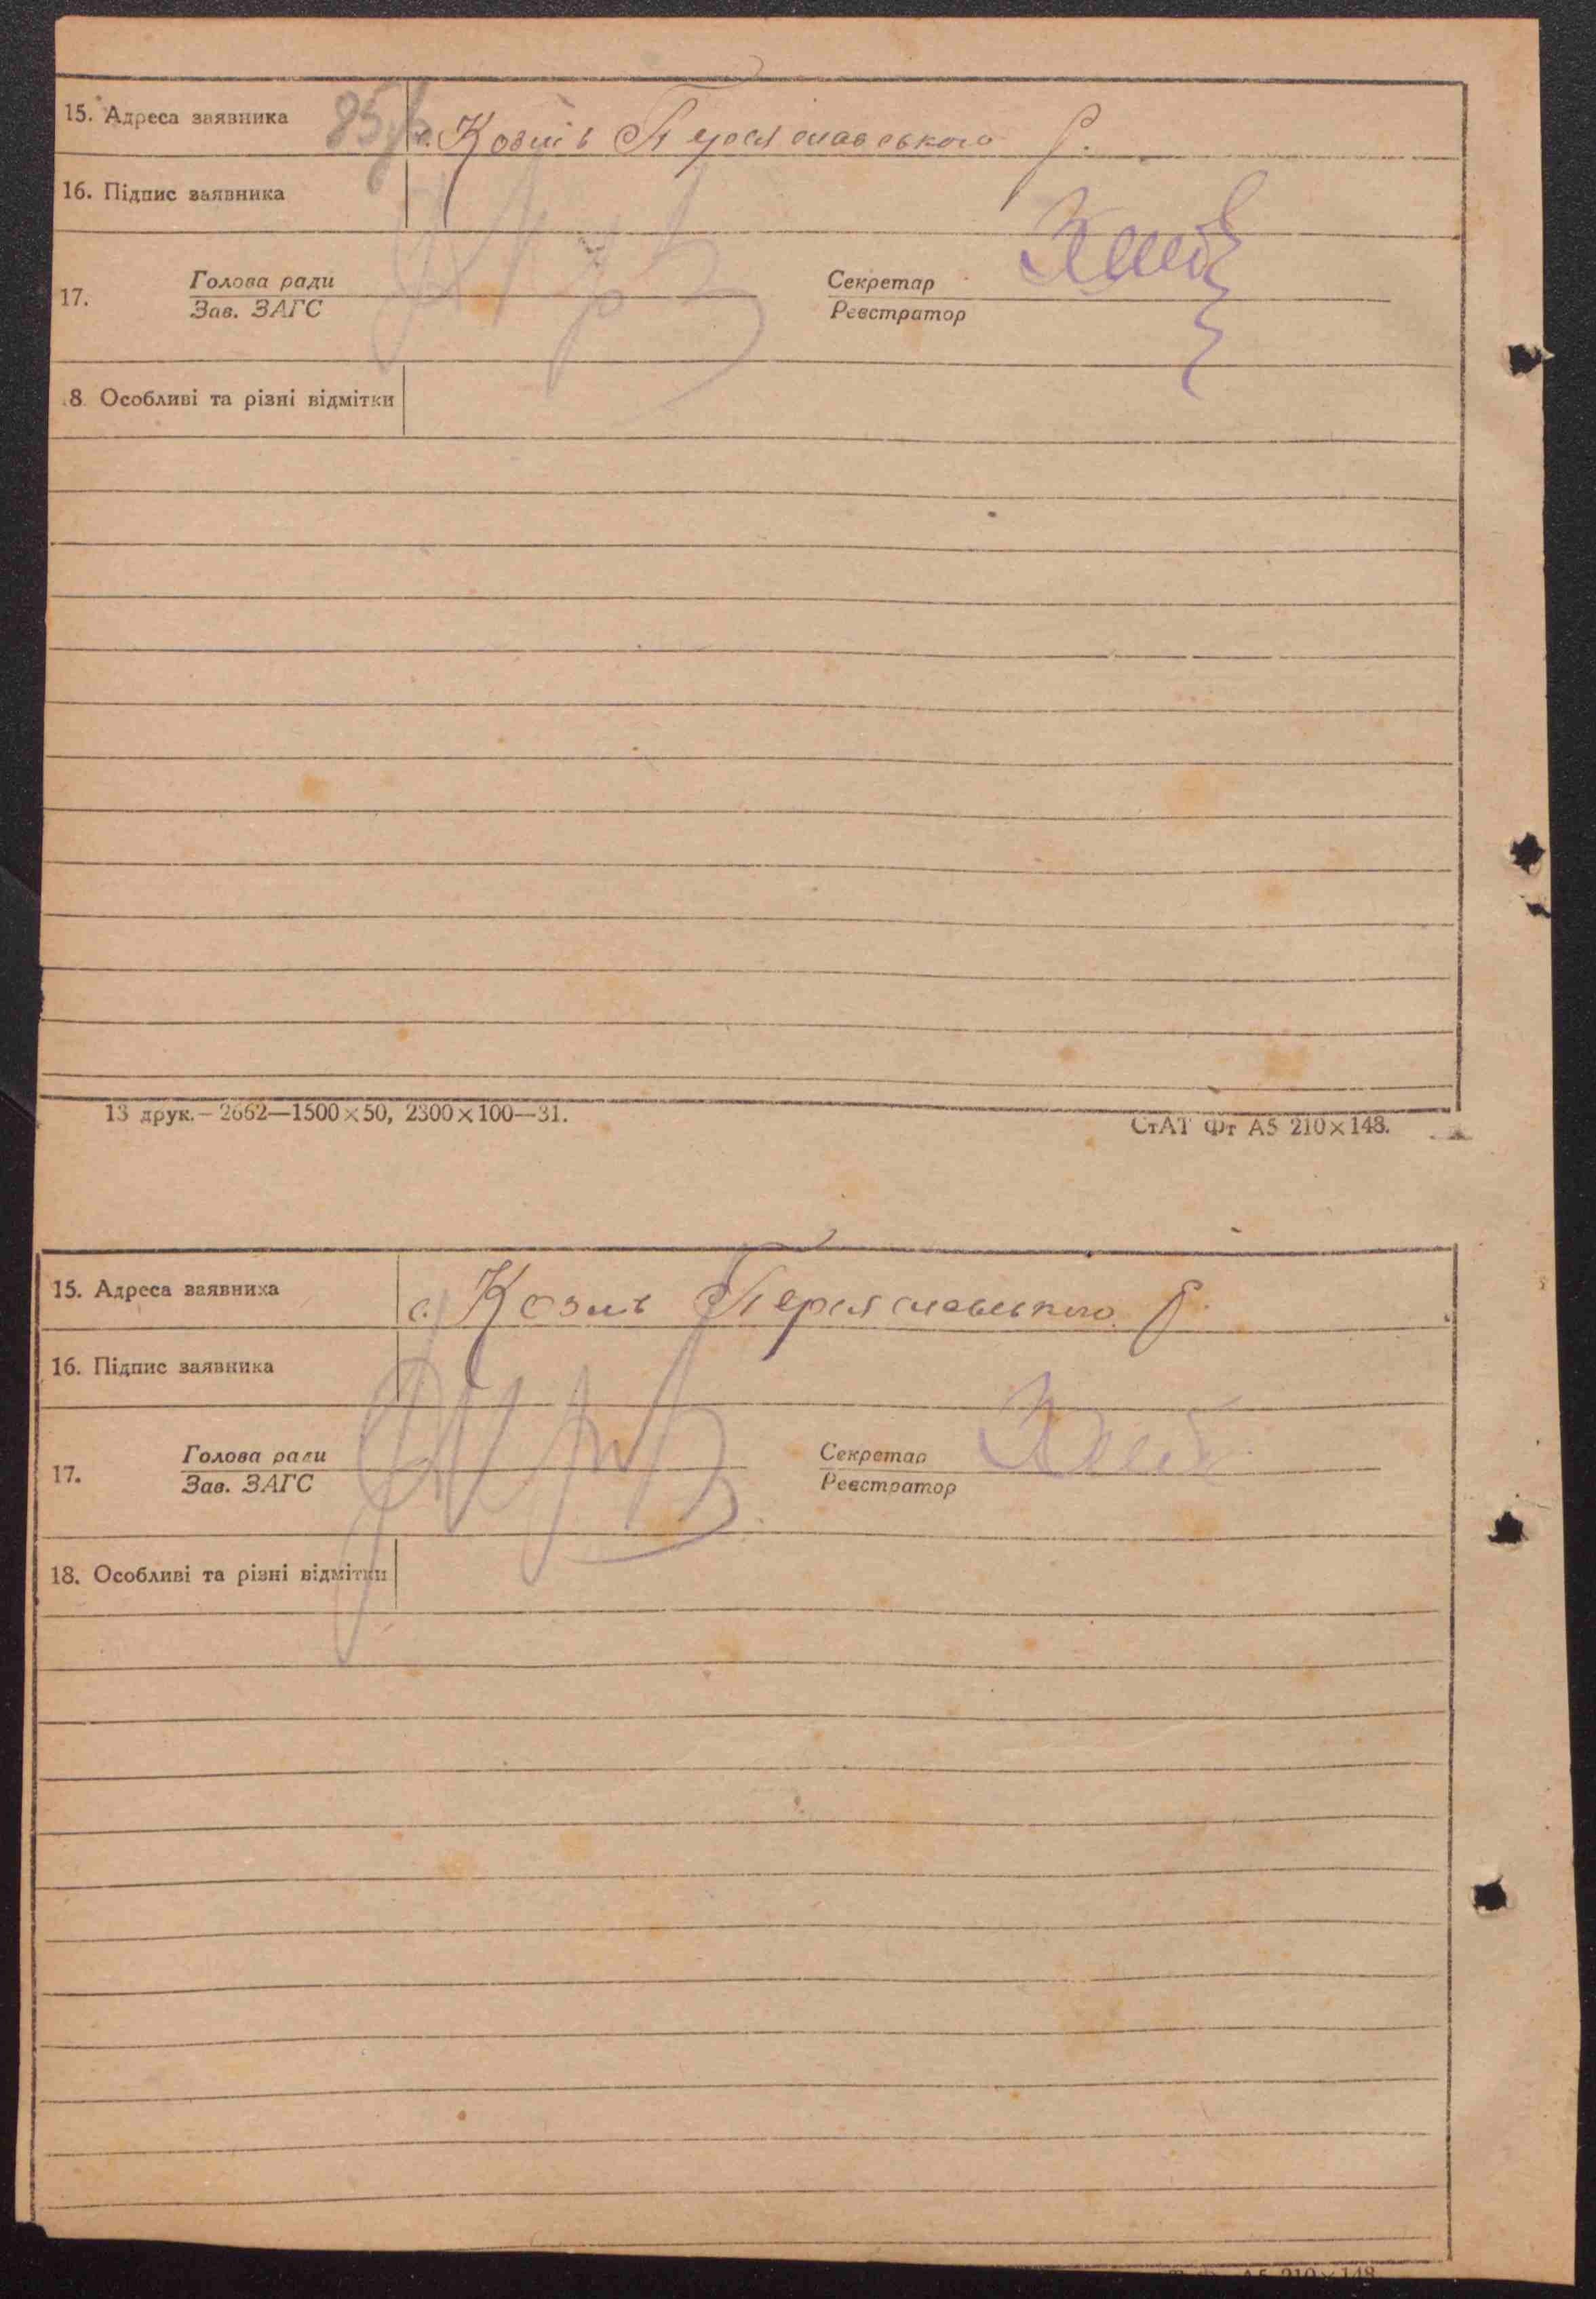 15. Адреса заявника с. Козлів Переяславського р.
85
16. Підпис заявника
17. Голова ради Секретар
Зав. ЗАГС Реєстратор
8. Особливі та різні відмітки
13 друк.— 2662—1500×50, 2300×100—31. СтАТ Фт А5 210×148.
15. Адреса заявника с. Козлів Переяславського р.
16. Підпис заявника
17. Голова ради Секретар
Зав. ЗАГС Реєстратор
18. Особливі та різні відмітки
А5 210×148